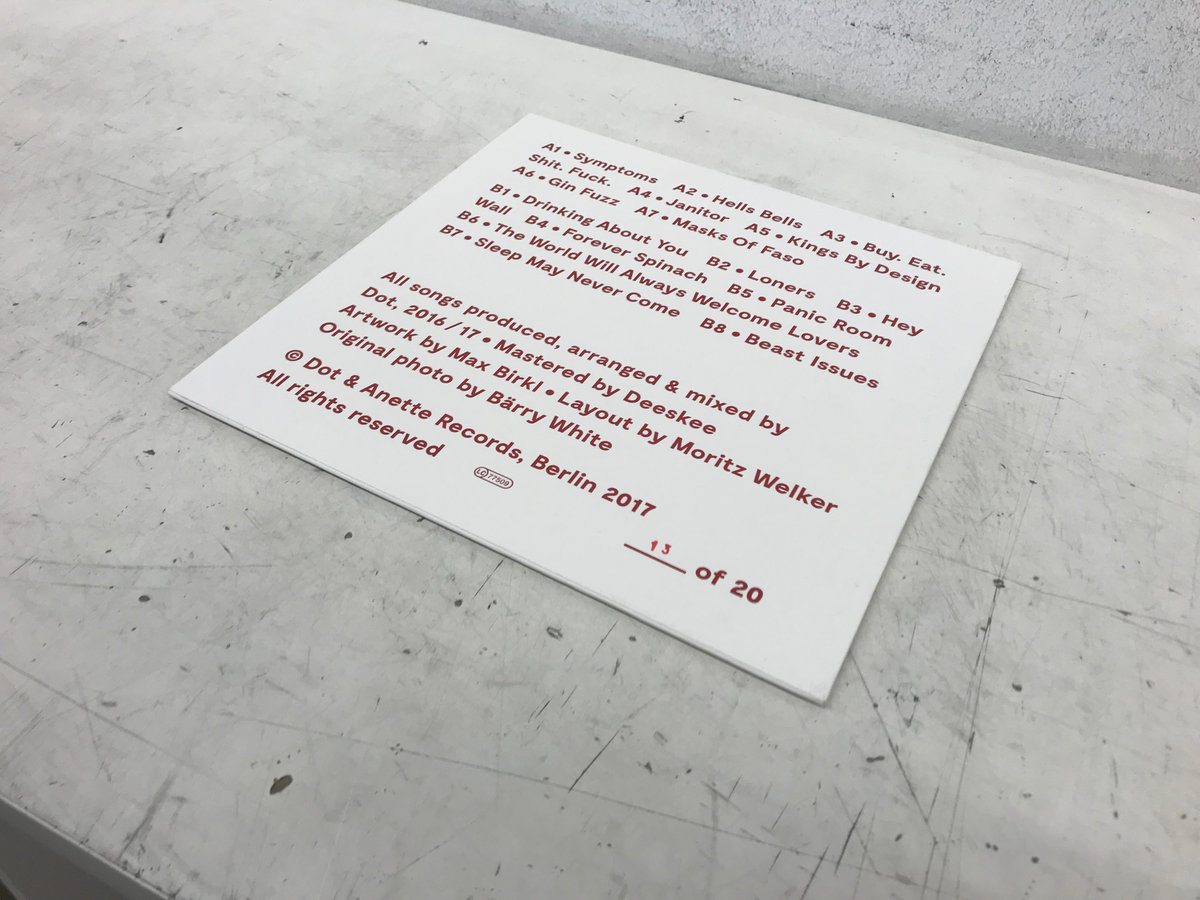 A1 • Symptoms A2 • Hells Bells A3 • Buy. Eat.
Shit. Fuck. A4 • Janitor A5 • Kings By Design
A6 • Gin Fuzz A7 • Masks Of Faso
B1 • Drinking About You B2 • Loners B3 • Hey
Wall B4 • Forever Spinach B5 • Panic Room
B6 • The World Will Always Welcome Lovers
B7 • Sleep May Never Come B8 • Beast Issues
All songs produced, arranged & mixed by
Dot, 2016 / 17 • Mastered by Deeskee
Artwork by Max Birkl • Layout by Moritz Welker
Original photo by Bärry White
© Dot & Anette Records, Berlin 2017
All rights reserved
LC 77509
13 of 20